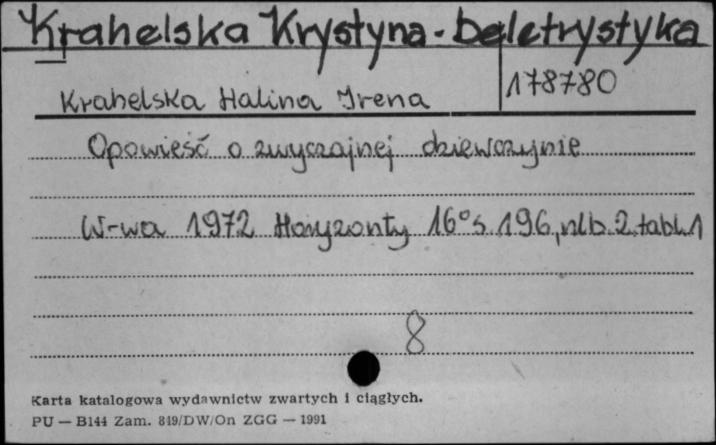 Krahelska Krystyna - beletrystyka
178780
Krahelska Halina Irena
Opowieść o zwyczajnej dziewczynie
W-wa 1972 Horyzonty 16° s. 196, nlb. 2, tabl. 1
8
Karta katalogowa wydawnictw zwartych i ciągłych.
PU — B144 Zam. 819/DW/On ZGG — 1991